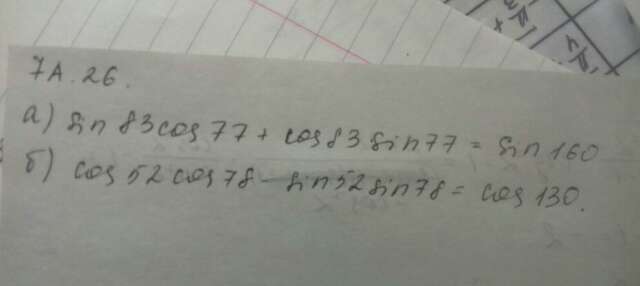 7A.26.
а) sin 83 cos 77 + cos 83 sin 77 = sin 160
б) cos 52 cos 78 - sin 52 sin 78 = cos 130.